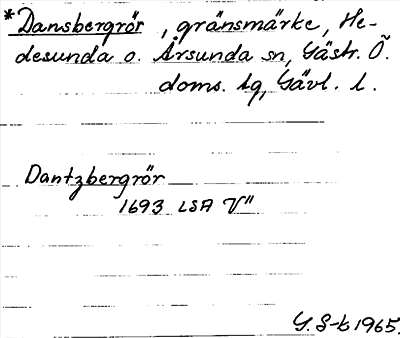 *Dansbergrör, gränsmärke, He-
desunda o. Årsunda sn, Gästr. Ö.
doms. lg, Gävl. l.
Dantzbergrör
1693 LSA V"
G. S-b 1965.